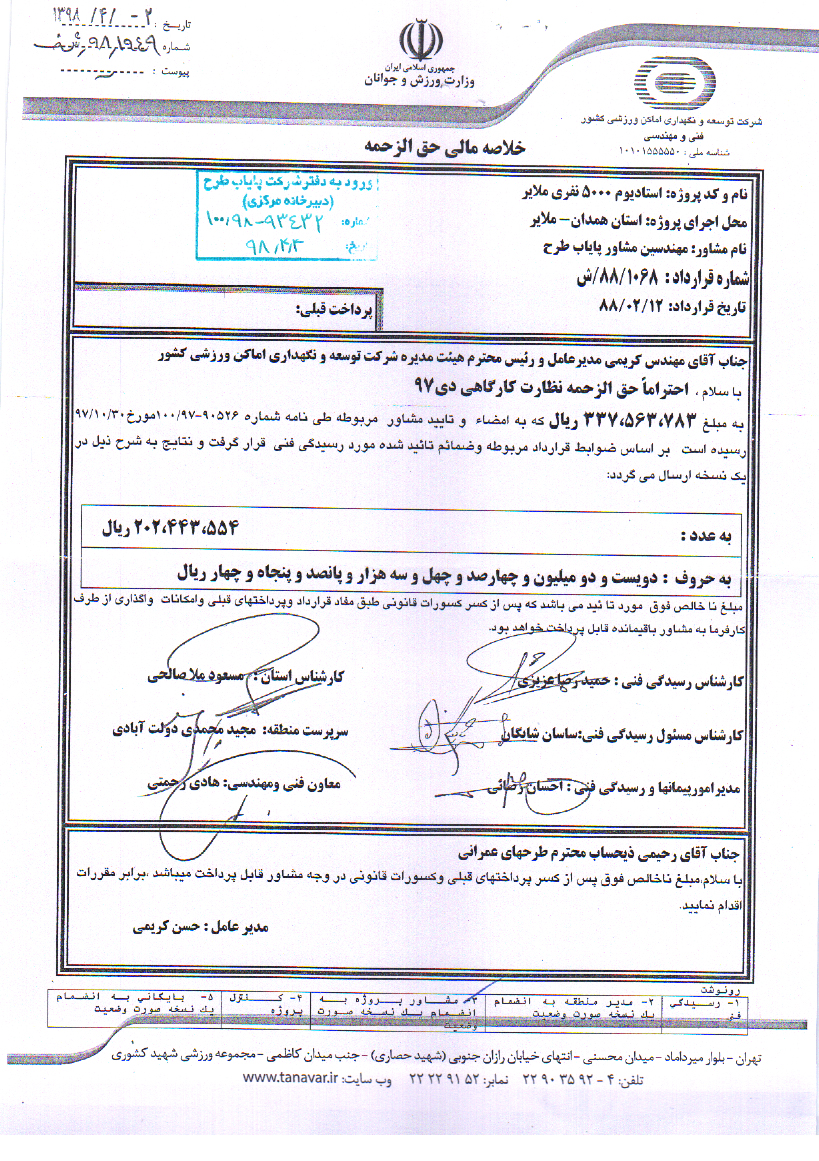 تاریخ : ۱۳۹۸ /۴/ ۲
شماره
پیوست :
جمهوری اسلامی ایران
وزارت ورزش و جوانان
شرکت توسعه و نگهداری اماکن ورزشی کشور
فنی و مهندسی
شناسه ملی : ۱۰۱۰۱۵۵۵۵۵۰
خلاصه مالی حق الزحمه
ورود به دفتر شرکت پایاب طرح
(دبیرخانه مرکزی)
۱۰۰/۹۸-۹۳۴۳۲
۹۸/۴/۳
نام و کد پروژه: استادیوم ۵۰۰۰ نفری ملایر
محل اجرای پروژه: استان همدان– ملایر
نام مشاور: مهندسین مشاور پایاب طرح
شماره قرارداد : ۸۸/۱۰۶۸/ش
تاریخ قرارداد: ۸۸/۰۲/۱۲
پرداخت قبلی:
جناب آقای مهندس کریمی مدیرعامل و رئیس محترم هیئت مدیره شرکت توسعه و نگهداری اماکن ورزشی کشور
با سلام ، احتراماً حق الزحمه نظارت کارگاهی دی۹۷
به مبلغ ۳۳۷،۵۶۳،۷۸۳ ریال که به امضاء و تایید مشاور مربوطه طی نامه شماره ۹۰۵۲۶-۱۰۰/۹۷مورخ۹۷/۱۰/۳۰
رسیده است بر اساس ضوابط قرارداد مربوطه وضمائم تائید شده مورد رسیدگی فنی قرار گرفت و نتایج به شرح ذیل در
یک نسخه ارسال می گردد:
به عدد : ۲۰۲،۴۴۳،۵۵۴ ریال
به حروف : دویست و دو میلیون و چهارصد و چهل و سه هزار و پانصد و پنجاه و چهار ریال
مبلغ نا خالص فوق مورد تا ئید می باشد که پس از کسر کسورات قانونی طبق مفاد قرارداد وپرداختهای قبلی وامکانات واگذاری از طرف
کارفرما به مشاور باقیمانده قابل پرداخت خواهد بود.
کارشناس رسیدگی فنی : حمید رضا عزیزی کارشناس استان : مسعود ملا صالحی
کارشناس مسئول رسیدگی فنی:ساسان شایگان سرپرست منطقه: مجید محمدی دولت آبادی
مدیرامورپیمانها و رسیدگی فنی : احسان رضائی معاون فنی ومهندسی: هادی رحمتی
جناب آقای رحیمی ذیحساب محترم طرحهای عمرانی
با سلام،مبلغ ناخالص فوق پس از کسر پرداختهای قبلی وکسورات قانونی در وجه مشاور قابل پرداخت میباشد ،برابر مقررات
اقدام نمایید.
مدیر عامل : حسن کریمی
رونوشت
۱- رسیدگی فنی
۲- مدیر منطقه به انضمام یک نسخه صورت وضعیت
۳- مشاور پروژه به انضمام یک نسخه صورت وضعیت
۴- کنترل پروژه
۵- بایگانی به انضمام یک نسخه صورت وضعیت
تهران – بلوار میرداماد – میدان محسنی –انتهای خیابان رازان جنوبی (شهید حصاری) – جنب میدان کاظمی – مجموعه ورزشی شهید کشوری
تلفن: ۴ – ۹۲ ۳۵ ۹۰ ۲۲ نمابر: ۵۲ ۹۱ ۲۲ ۲۲ وب سایت: www.tanavar.ir